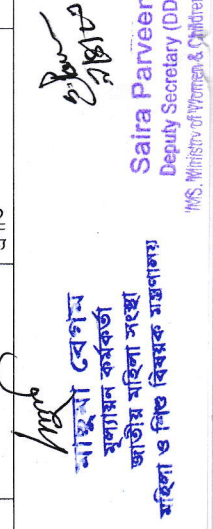 মাহমুদা বেগম
মূল্যায়ন কর্মকর্তা
জাতীয় মহিলা সংস্থা
মহিলা ও শিশু বিষয়ক মন্ত্রণালয়
Saira Parveen
Deputy Secretary (DD
Ministry of Women & Children